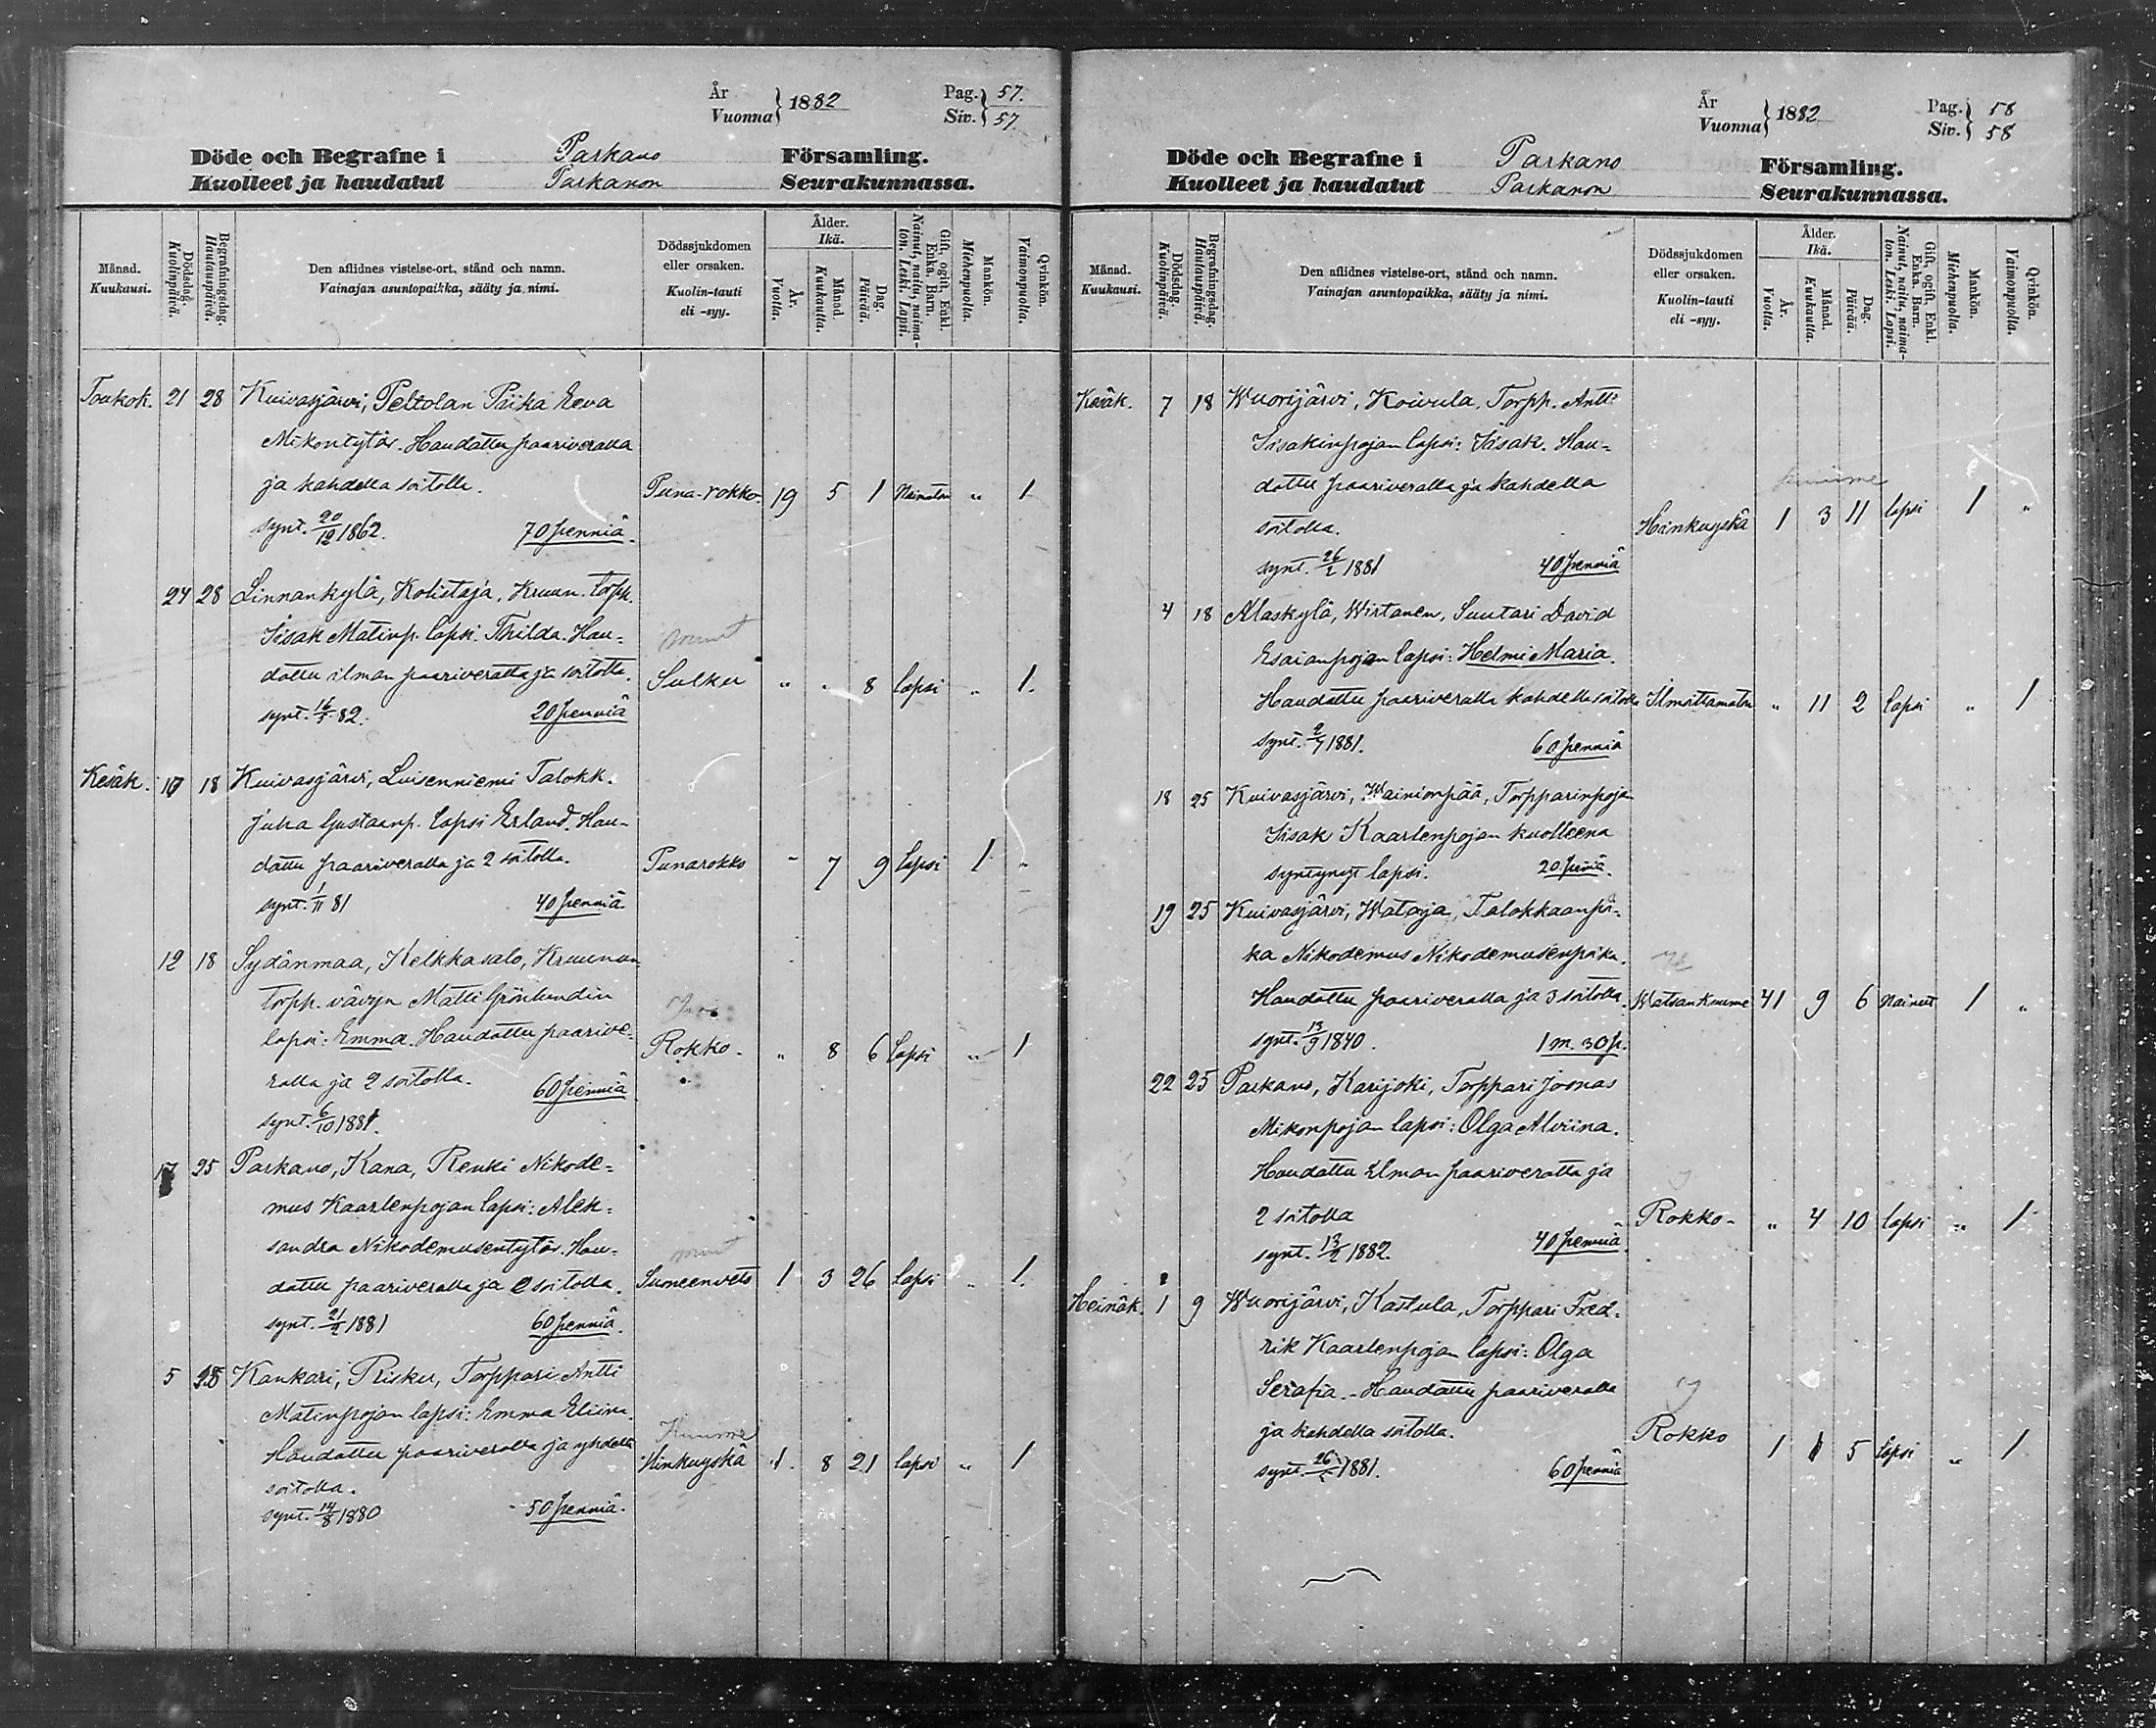 År
Vuonna } 1882
Pag. } 57.
Siv. } 57.
Döde och Begrafne i Parkano Församling.
Kuolleet ja haudatut Parkanon Seurakunnassa.
Månad. Kuukausi.
Dödsdag. Kuolinpäivä.
Begrafningsdag. Hautauspäivä.
Den aflidnes vistelse-ort, stånd och namn.
Vainajan asuntopaikka, sääty ja nimi.
Dödssjukdomen
eller orsaken.
Kuolin-tauti
eli -syy.
Ålder.
Ikä.
År. Vuotta.
Månad. Kuukautta.
Dag. Päivää.
Gift, ogift, Enkl. Enka. Barn. Nainut, naitu, naimaton. Leski. Lapsi.
Mankön. Miehenpuolia.
Qvinkön. Vaimonpuolia.
Toukok. 21 28 Kuivasjärvi, Peltolan Piika Eeva
Mikontytär. Haudattu paariveralla
ja kahdella soitolla. Puna-rokko. 19 5 1 Naimaton " 1
synt. 20/12 1862. 70 penniä.
24 28 Linnankylä, Kolistaja, Kruun. torpp.
Iisak Matinp. lapsi: Thilda. Hau-
dattu ilman paariveratta ja soitotta. Sulku " " 8 lapsi " 1.
synt. 16/5 82. 20 penniä
Kesäk. 10 18 Kuivasjärvi, Luisenniemi Talokk.
Juha Gustaanp. lapsi Erland. Hau-
dattu paariveralla ja 2 soitolla. Punarokko - 7 9 lapsi 1 "
synt. 1/11 81 40 penniä.
12 18 Sydänmaa, Kelkkasalo, Kruunun
torpp. vävyn Matti Grönlundin
lapsi: Emma. Haudattu paarive-
ralla ja 2 soitolla. Rokko. " 8 6 lapsi " 1
60 penniä
synt. 6/10 1881.
17 25 Parkano, Kana, Renki Nikode-
mus Kaarlenpojan lapsi: Alek-
sandra Nikodemusentytär. Hau-
dattu paariveralla ja 2 soitolla. Suoneenveto 1 3 26 lapsi " 1.
synt. 21/2 1881 60 penniä.
5 25 Kankari, Risku, Torppari Antti
Matinpojan lapsi: Emma Eliina.
Haudattu paariveralla ja yhdellä Kuume
soitolla. Hinkuyskä 1. 8 21 lapsi " 1
synt. 14/8 1880 50 penniä.
År
Vuonna } 1882
Pag. } 58
Siv. } 58
Döde och Begrafne i Parkano Församling.
Kuolleet ja haudatut Parkanon Seurakunnassa.
Månad. Kuukausi.
Dödsdag. Kuolinpäivä.
Begrafningsdag. Hautauspäivä.
Den aflidnes vistelse-ort, stånd och namn.
Vainajan asuntopaikka, sääty ja nimi.
Dödssjukdomen
eller orsaken.
Kuolin-tauti
eli -syy.
Ålder.
Ikä.
År. Vuotta.
Månad. Kuukautta.
Dag. Päivää.
Gift, ogift, Enkl. Enka. Barn. Nainut, naitu, naimaton. Leski. Lapsi.
Mankön. Miehenpuolia.
Qvinkön. Vaimonpuolia.
Kesäk. 7 18 Wuorijärvi, Koivula, Torpp. Antti
Iisakinpojan lapsi: Iisak. Hau-
dattu paariveralla ja kahdella
soitolla. Hinkuyskä 1 3 11 lapsi 1 "
synt. 26/2 1881 40 penniä
4 18 Alaskylä, Wirtanen, Suutari David
Esaianpojan lapsi: Helmi Maria.
Haudattu paariveralla kahdella soitolla Ilmoittamaton " 11 2 lapsi " 1
synt. 2/7 1881. 60 penniä
18 25 Kuivasjärvi, Wainionpää, Torpparinpojan
Iisak Kaarlenpojan kuolleena
syntynyt lapsi. 20 penniä.
19 25 Kuivasjärvi, Wataja, Talokkaanpoi-
ka Nikodemus Nikodemusenpoika.
Haudattu paariveralla ja 3 soitolla. Watsankuume 41 9 6 Nainut 1 "
synt. 13/9 1840. 1 m. 30 p.
22 25 Parkano, Karijoki, Torppari Joonas
Mikonpojan lapsi: Olga Alviina.
Haudattu ilman paariveratta ja
2 soitolla Rokko - " 4 10 lapsi " 1
synt. 13/2 1882. 40 penniä.
Heinäk. 1 9 Wuorijärvi, Kastula, Torppari Fred-
rik Kaarlenpojan lapsi: Olga
Serafia. - Haudattu paariveralla
ja kahdella soitolla. Rokko 1 1 5 lapsi " 1
synt. 26/5 1881. 60 penniä